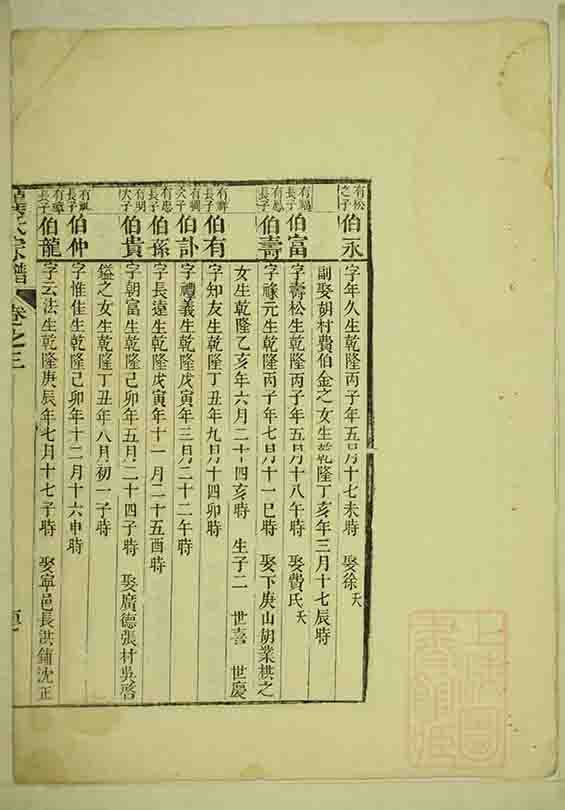 有松之子 伯永 字年久生乾隆丙子年五月十七未時 娶徐氏
副娶胡村費伯金之女生乾隆丁亥年三月十七辰時
長子 伯富 字壽松生乾隆丙子年五月十八午時 娶費氏
長子 伯壽 字祿元生乾隆丙子年七月十一巳時 娶下庚山胡業栱之
女生乾隆乙亥年六月二十四亥時 生子二 世喜 世慶
長子 伯有 字知友生乾隆丁丑年九月十四卯時
次子 伯訃 字禮義生乾隆戊寅年三月二十二午時
有忠長子 伯孫 字長遠生乾隆戊寅年十一月二十五酉時
有明次子 伯貴 字朝富生乾隆己卯年五月二十四子時 娶廣德張村吳啓
鎰之女生乾隆丁丑年八月初一子時
長子 伯仲 字惟佳生乾隆己卯年十二月十六申時
長子 伯龍 字云法生乾隆庚辰年七月十七子時 娶寧邑長洪鋪沈正
氏宗譜 卷之三
上海圖書館藏